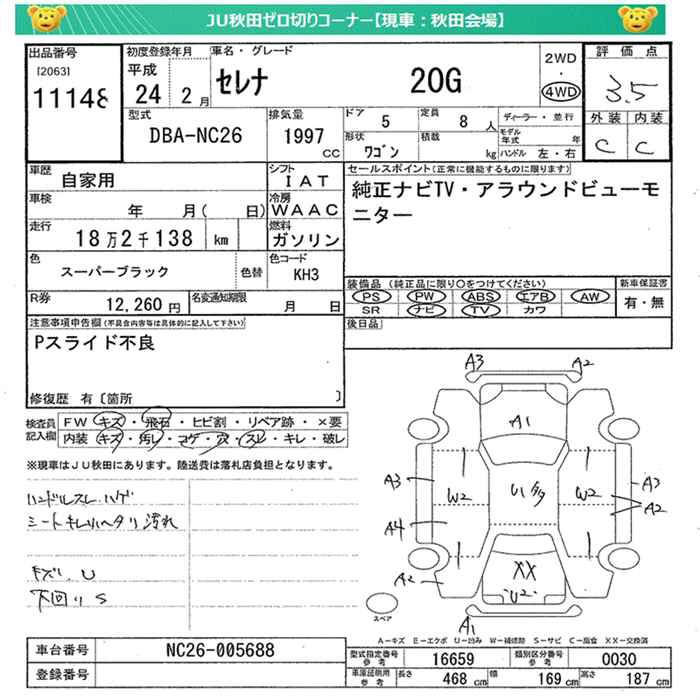 JU秋田ゼロ切りコーナー【現車：秋田会場】
出品番号
[2063]
11148
初度登録年月
平成
24 2月
車名・グレード
セレナ 20G
2WD
・
4WD
評価点
3.5
外装 内装
C C
型式
DBA-NC26
排気量
1997
CC
ドア
5
定員
8 人
形状
ワゴン
積載
kg
ディーラー・並行
モデル年式 年
ハンドル 左・右
車歴
自家用
シフト
IAT
車検
年 月( 日)
冷房
WAAC
走行
18万2千138 km
燃料
ガソリン
色
スーパーブラック
色替
色コード
KH3
R券
12,260円
名変通知期限
月 日
セールスポイント(正常に機能するものに限ります)
純正ナビTV・アラウンドビューモ
ニター
装備品 (純正品に限り○をつけてください)
PS PW ABS エアB AW
SR ナビ TV カワ
新車保証書
有・無
後日品
注意事項申告欄(不具合内容等は具体的に記入して下さい)
Pスライド不良
修復歴 有〔箇所 〕
検査員
記入欄
FW キズ・飛石・ヒビ割・リペア跡・×要
内装 キズ・汚レ・コゲ・穴・スレ・キレ・破レ
※現車はJU秋田にあります。陸送費は落札店負担となります。
ハンドルスレ、ハゲ
シートキレハヘタリ 汚れ
キズ、U
下回りS
A3
A2
A1
A3
W2
U1多
W2
A3
A2
A4
A2
XX
U2
A1
スペア
A－キズ E－エクボ U－凹み W－補修跡 S－サビ C－腐食 XX－交換済
車台番号
NC26-005688
登録番号
型式指定番号
参考
16659
類別区分番号
参考
0030
車庫証明用
参考
長さ 468 cm
幅 169 cm
高さ 187 cm